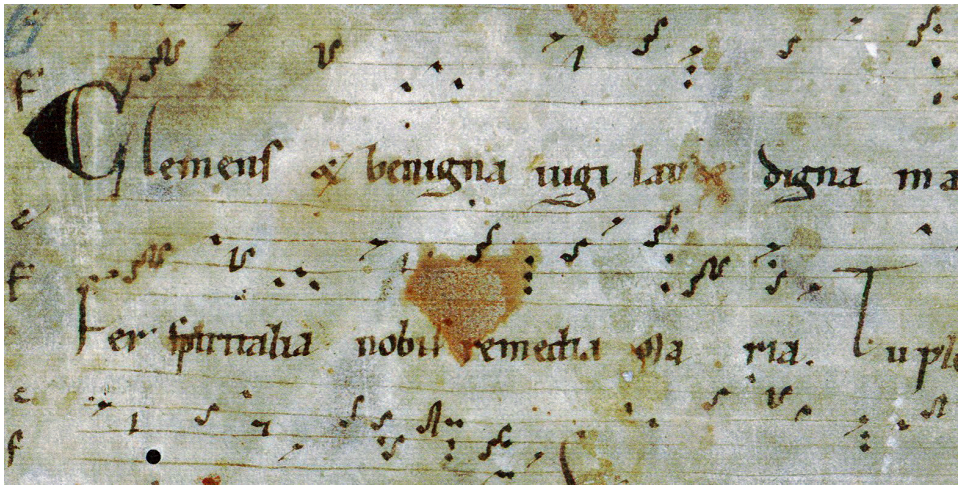 f
Clemens & benigna iugi laude digna ma
e
f
Fer spiritalia nobis remedia Maria. Tu ple
c
f